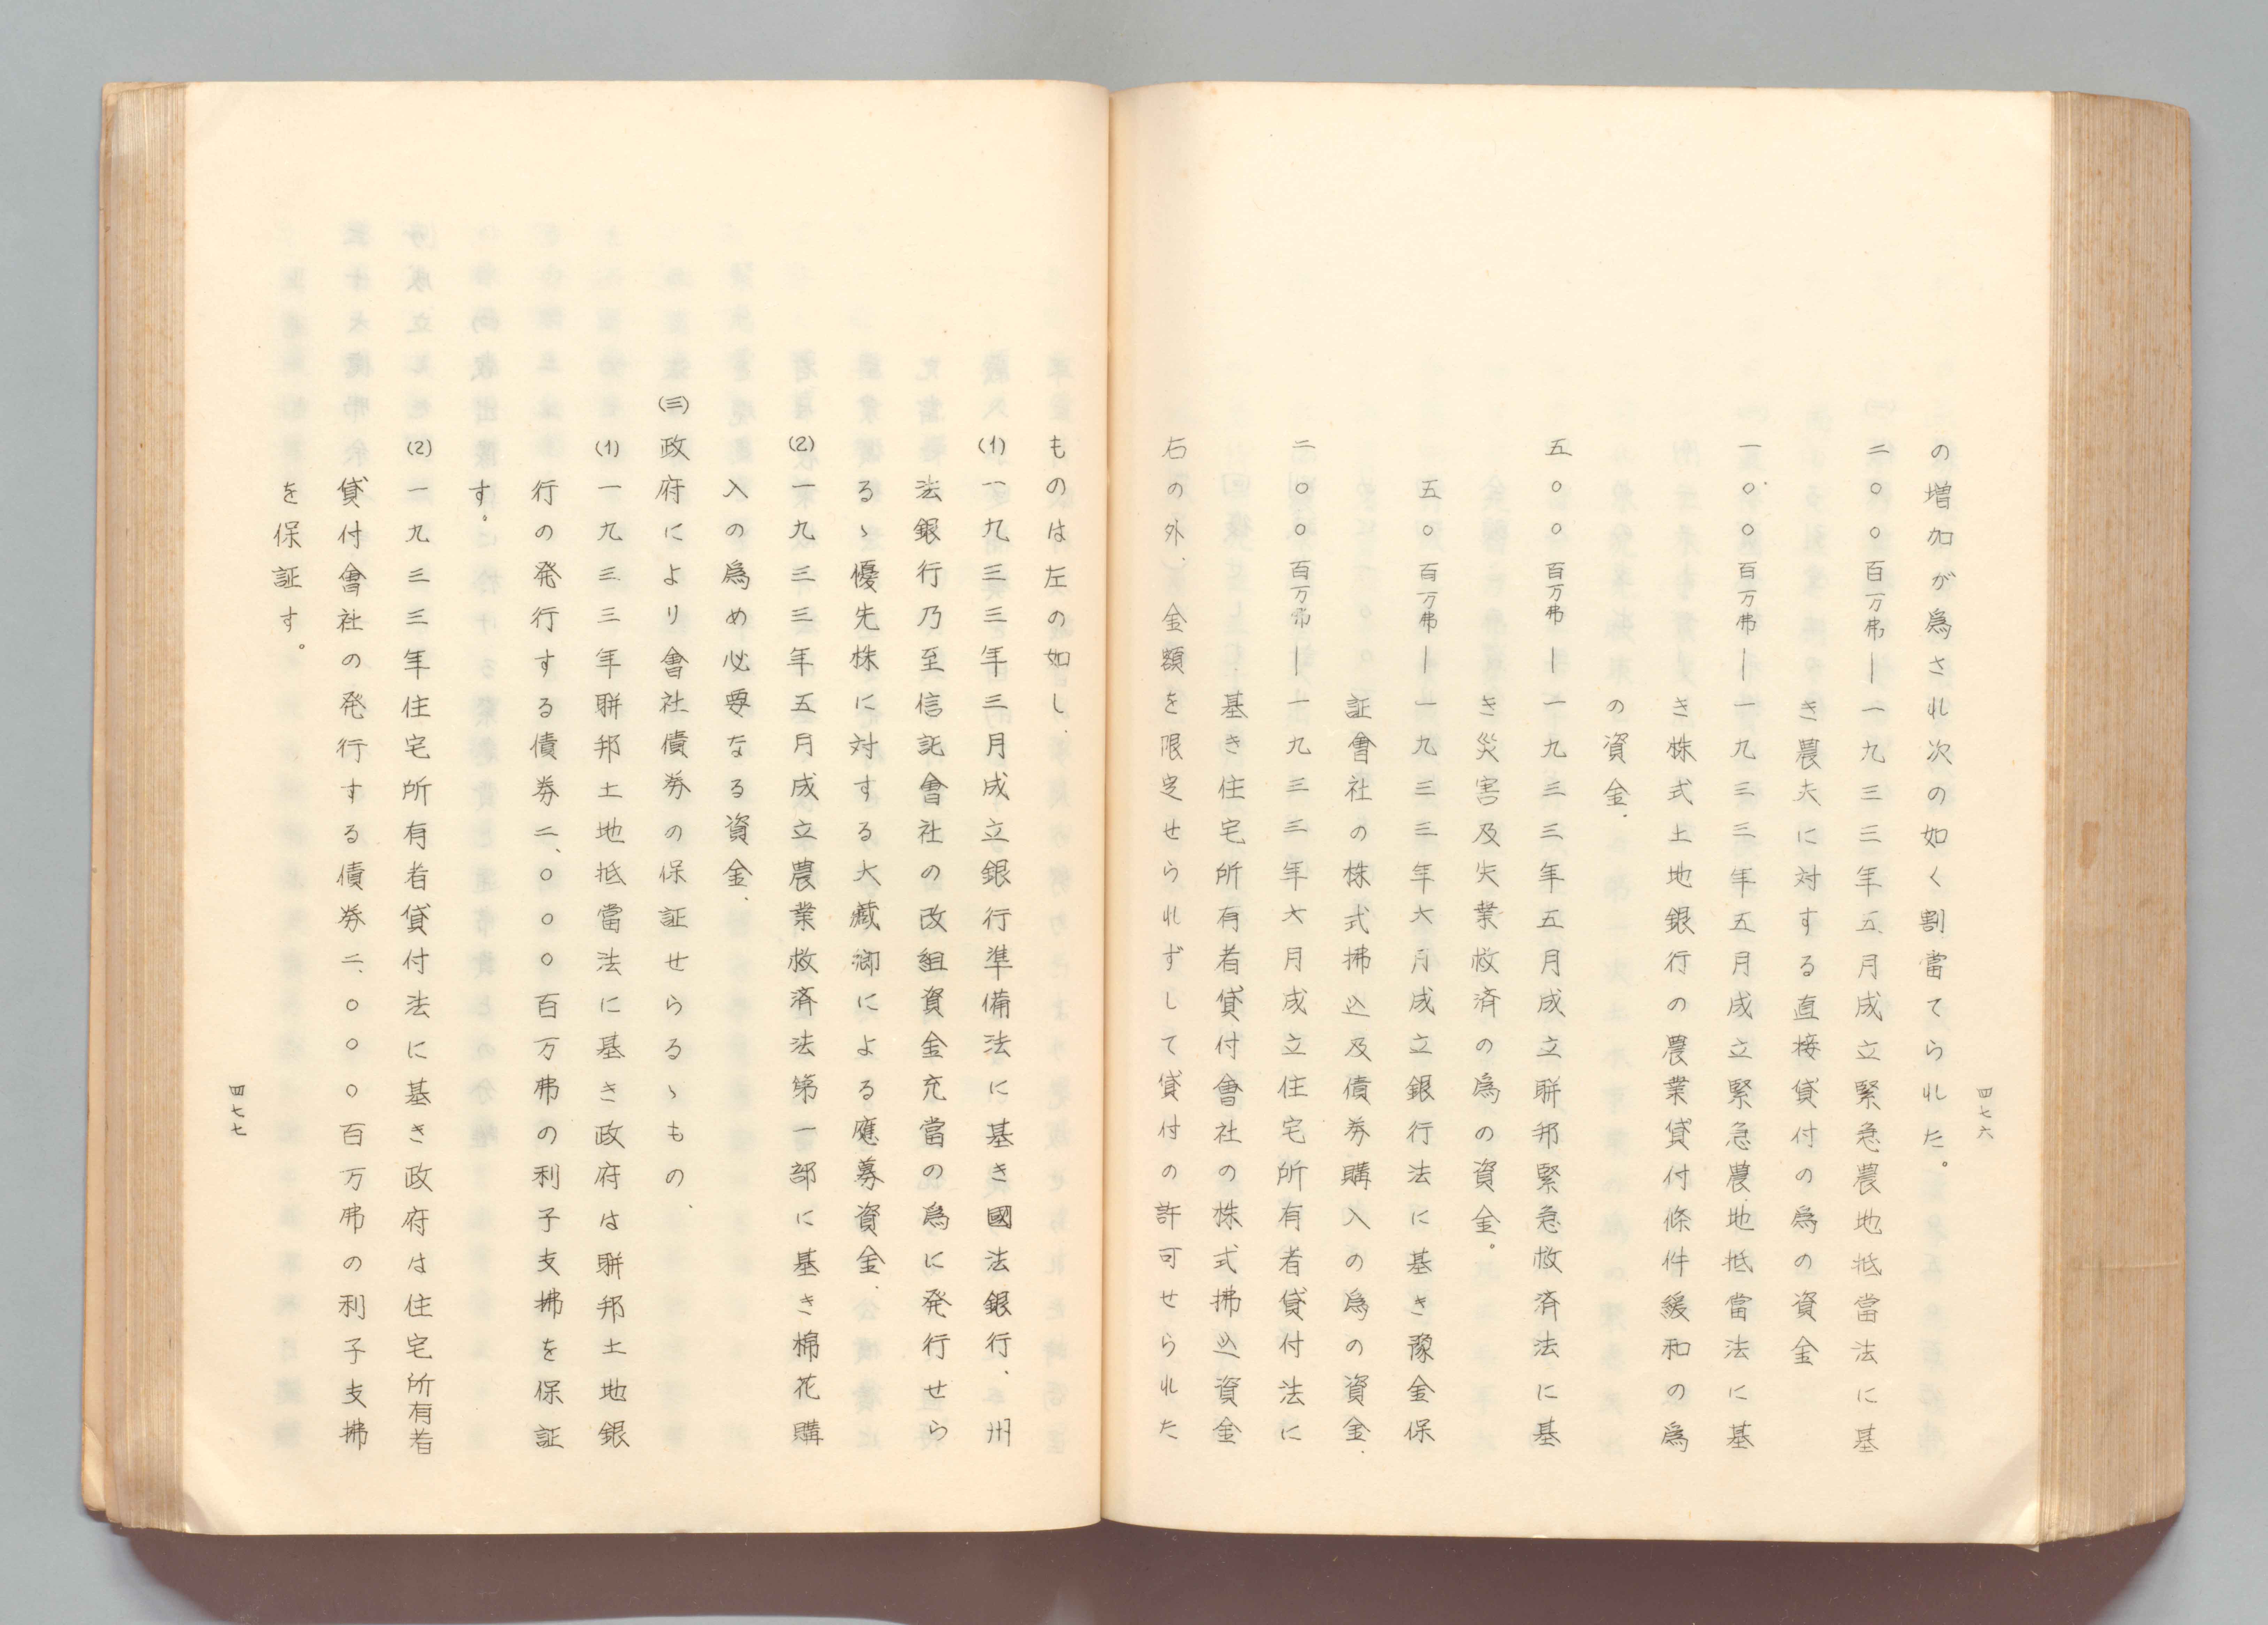 四七六
の増加が爲され次の如く割當てられた。
二〇〇百万弗―一九三三年五月成立緊急農地抵當法に基
き農夫に対する直接貸付の爲の資金
一〇〇百万弗―一九三三年五月成立緊急農地抵當法に基
き株式土地銀行の農業貸付條件緩和の爲
の資金.
五〇〇百万弗―一九三三年五月成立聯邦緊急救済法に基
き災害及失業救済の爲の資金。
五〇百万弗―一九三三年六月成立銀行法に基き豫金保
証會社の株式拂込及債券購入の爲の資金.
二〇〇百万弗―一九三三年六月成立住宅所有者貸付法に
基き住宅所有者貸付會社の株式拂込資金
右の外、金額を限定せられずして貸付の許可せられた
ものは左の如し.
(1)一九三三年三月成立銀行準備法に基き國法銀行、州
法銀行乃至信託會社の改組資金充當の爲に発行せら
るゝ優先株に対する大藏卿による應募資金.
(2)一九三三年五月成立農業救済法第一部に基き棉花購
入の爲め必要なる資金、
(三)政府により會社債券の保証せらるゝもの、
(1)一九三三年聯邦土地抵當法に基き政府は聯邦土地銀
行の発行する債券二、〇〇〇百万弗の利子支拂を保証
す。
(2)一九三三年住宅所有者貸付法に基き政府は住宅所有者
貸付會社の発行する債券二、〇〇〇百万弗の利子支拂
を保証す。
四七七